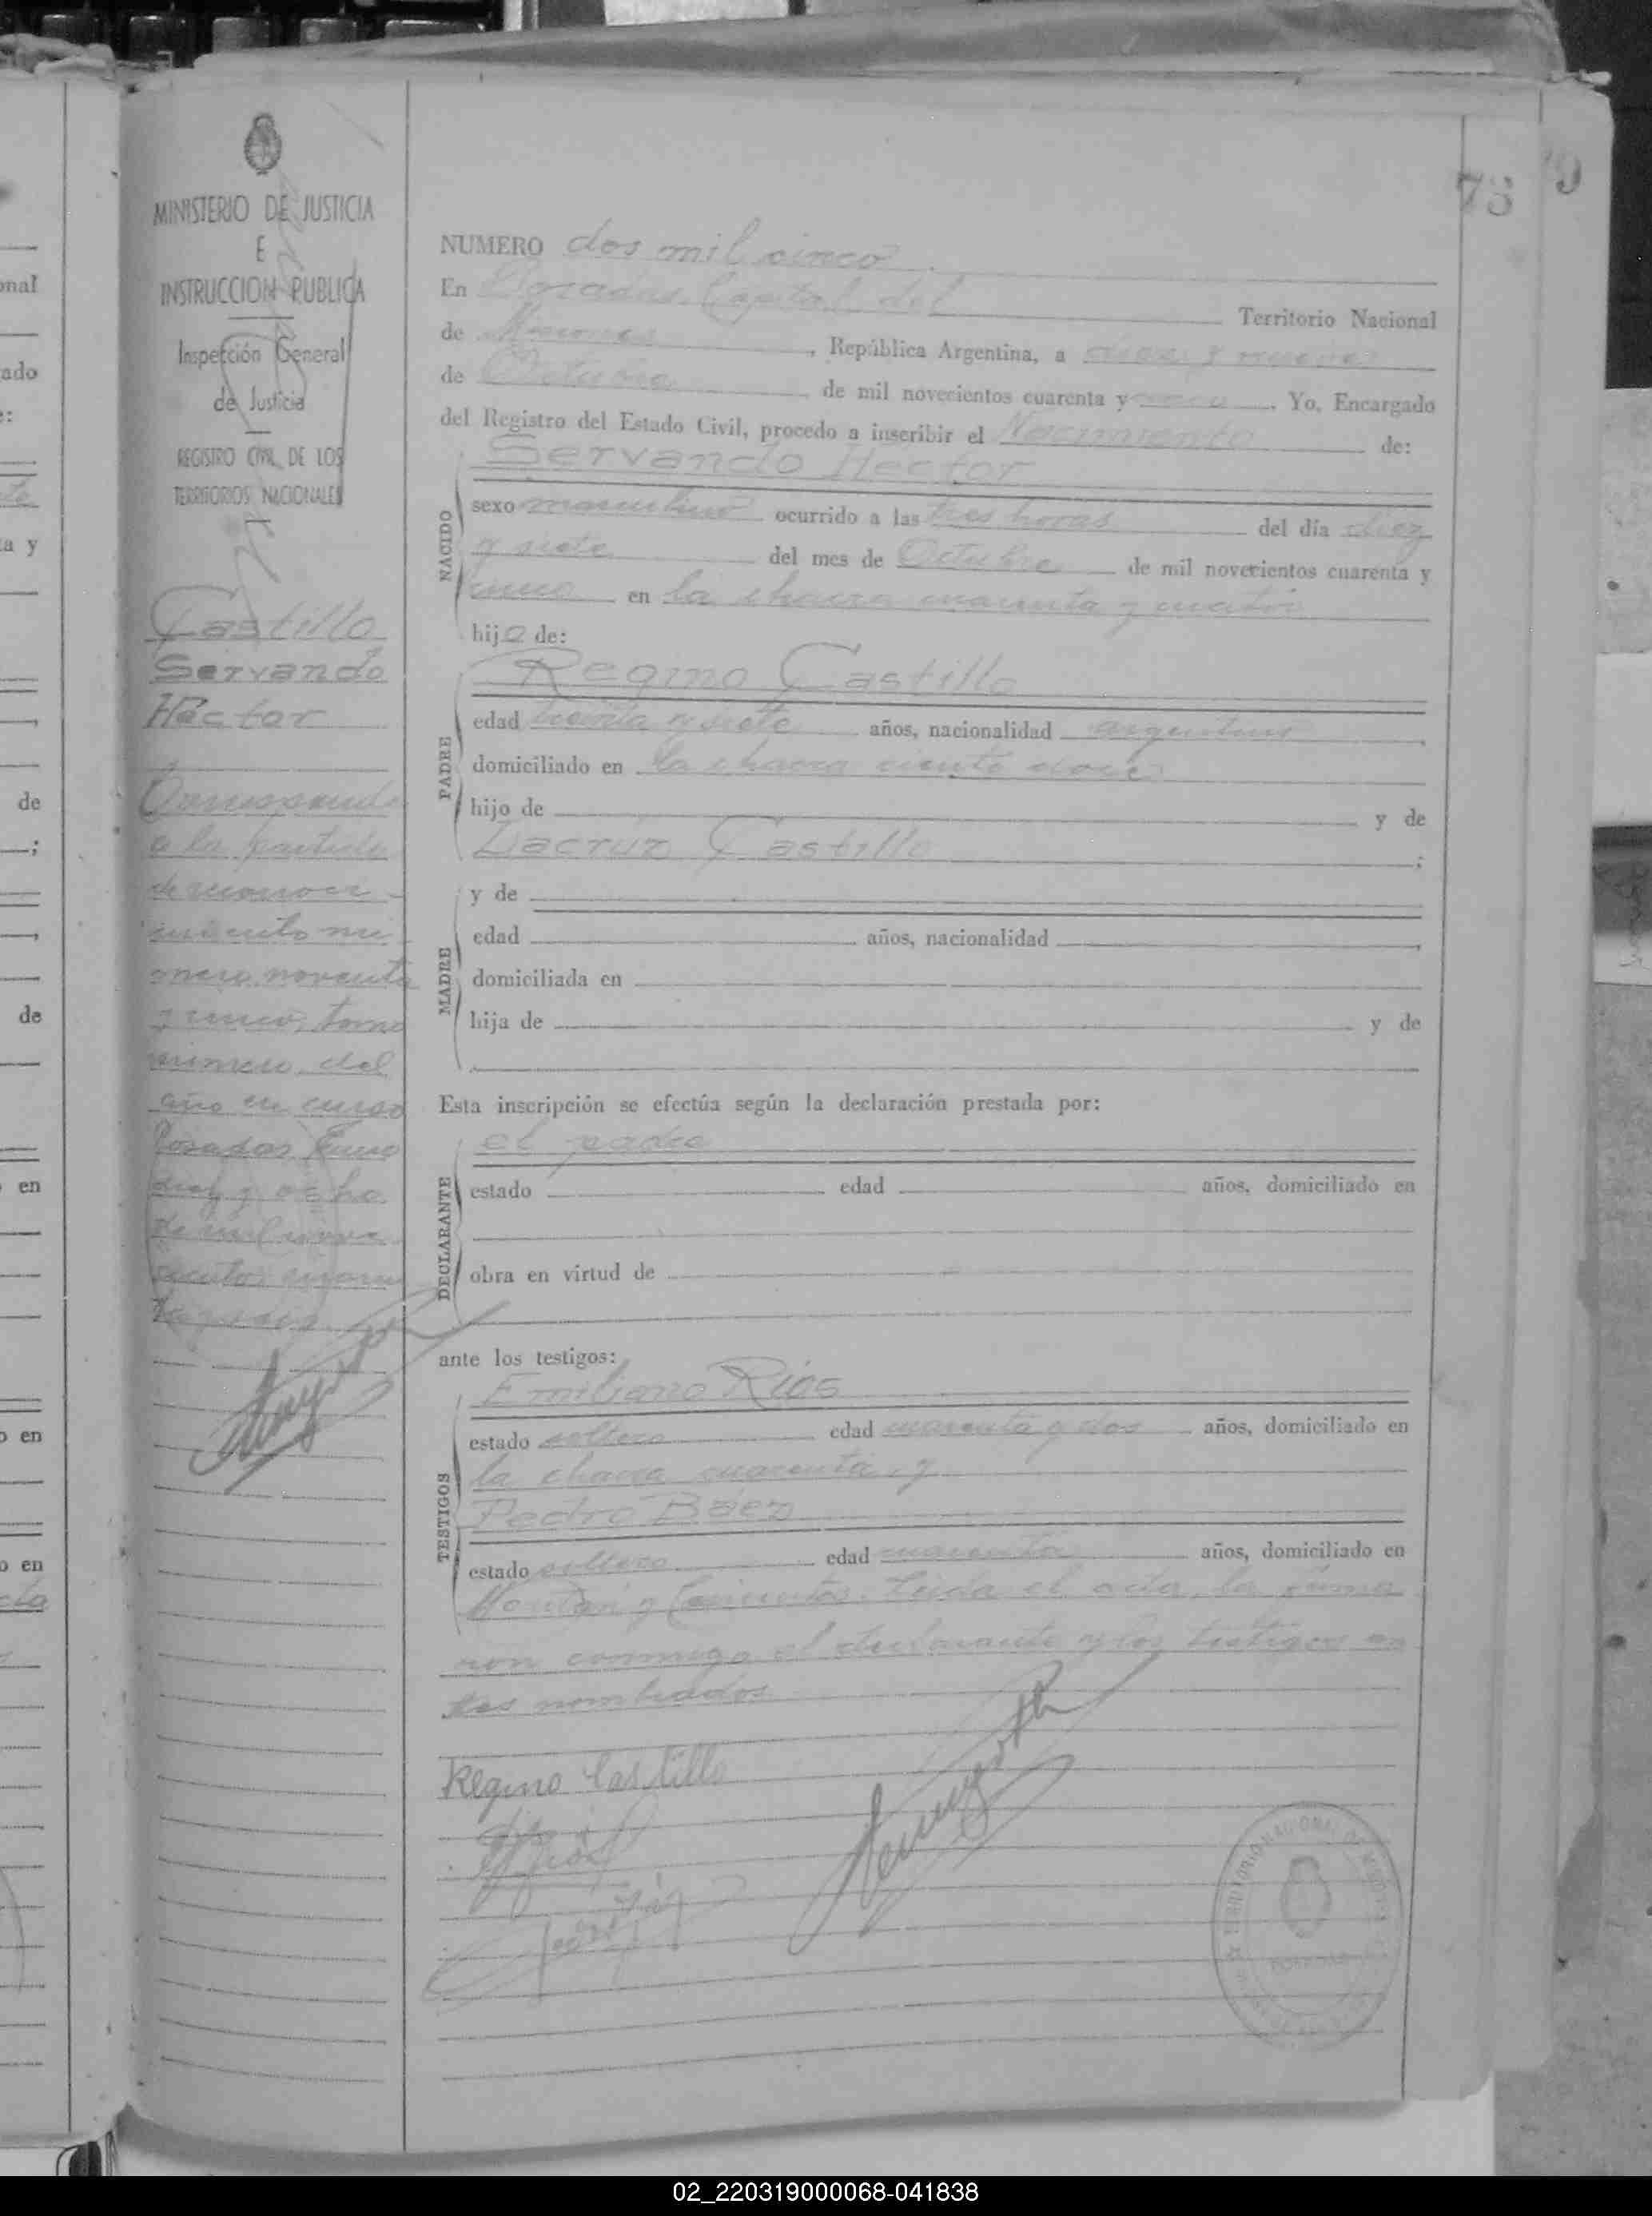 73
9
MINISTERIO DE JUSTICIA
E
INSTRUCCION PUBLICA
Inspección General
de Justicia
REGISTRO CIVIL DE LOS
TERRITORIOS NACIONALES
Castillo
Servando
Héctor
Corresponde
a la partida
de reconoci-
miento nú
mero noventa
y cinco, tomo
primero del
año en curso
Posadas Junio
diez y ocho
de mil nove
cientos cuaren
ta y
NUMERO dos mil cinco
En Posadas, Capital del Territorio Nacional
de Misiones, República Argentina, a diez y nueve
de Octubre de mil novecientos cuarenta y cinco. Yo, Encargado
del Registro del Estado Civil, procedo a inscribir el Nacimiento de:
Servando Hector
NACIDO
sexo masculino ocurrido a las tres horas del día diez
y siete del mes de Octubre de mil novecientos cuarenta y
cinco en la chacra cuarenta y cuatro
hijo de:
Regino Castillo
PADRE
edad treinta y siete años, nacionalidad argentino,
domiciliado en la chacra ciento doce
hijo de y de
Lacruz Castillo;
MADRE
y de
edad años, nacionalidad,
domiciliada en
hija de y de
Esta inscripción se efectúa según la declaración prestada por:
el padre
DECLARANTE
estado edad años, domiciliado en
obra en virtud de
ante los testigos:
Emiliano Ríos
TESTIGOS
estado soltero edad cuarenta y dos años, domiciliado en
la chacra cuarenta, y
Pedro Báez
estado soltero edad cuarenta años, domiciliado en
y Corrientes. Leída el acta, la firma
ron conmigo el declarante y los testigos an
tes nombrados
Regino Castillo
TERRITORIO NACIONAL DE MISIONES
POSADAS
nal
ado
de
en
de
en
en
en
02_220319000068-041838